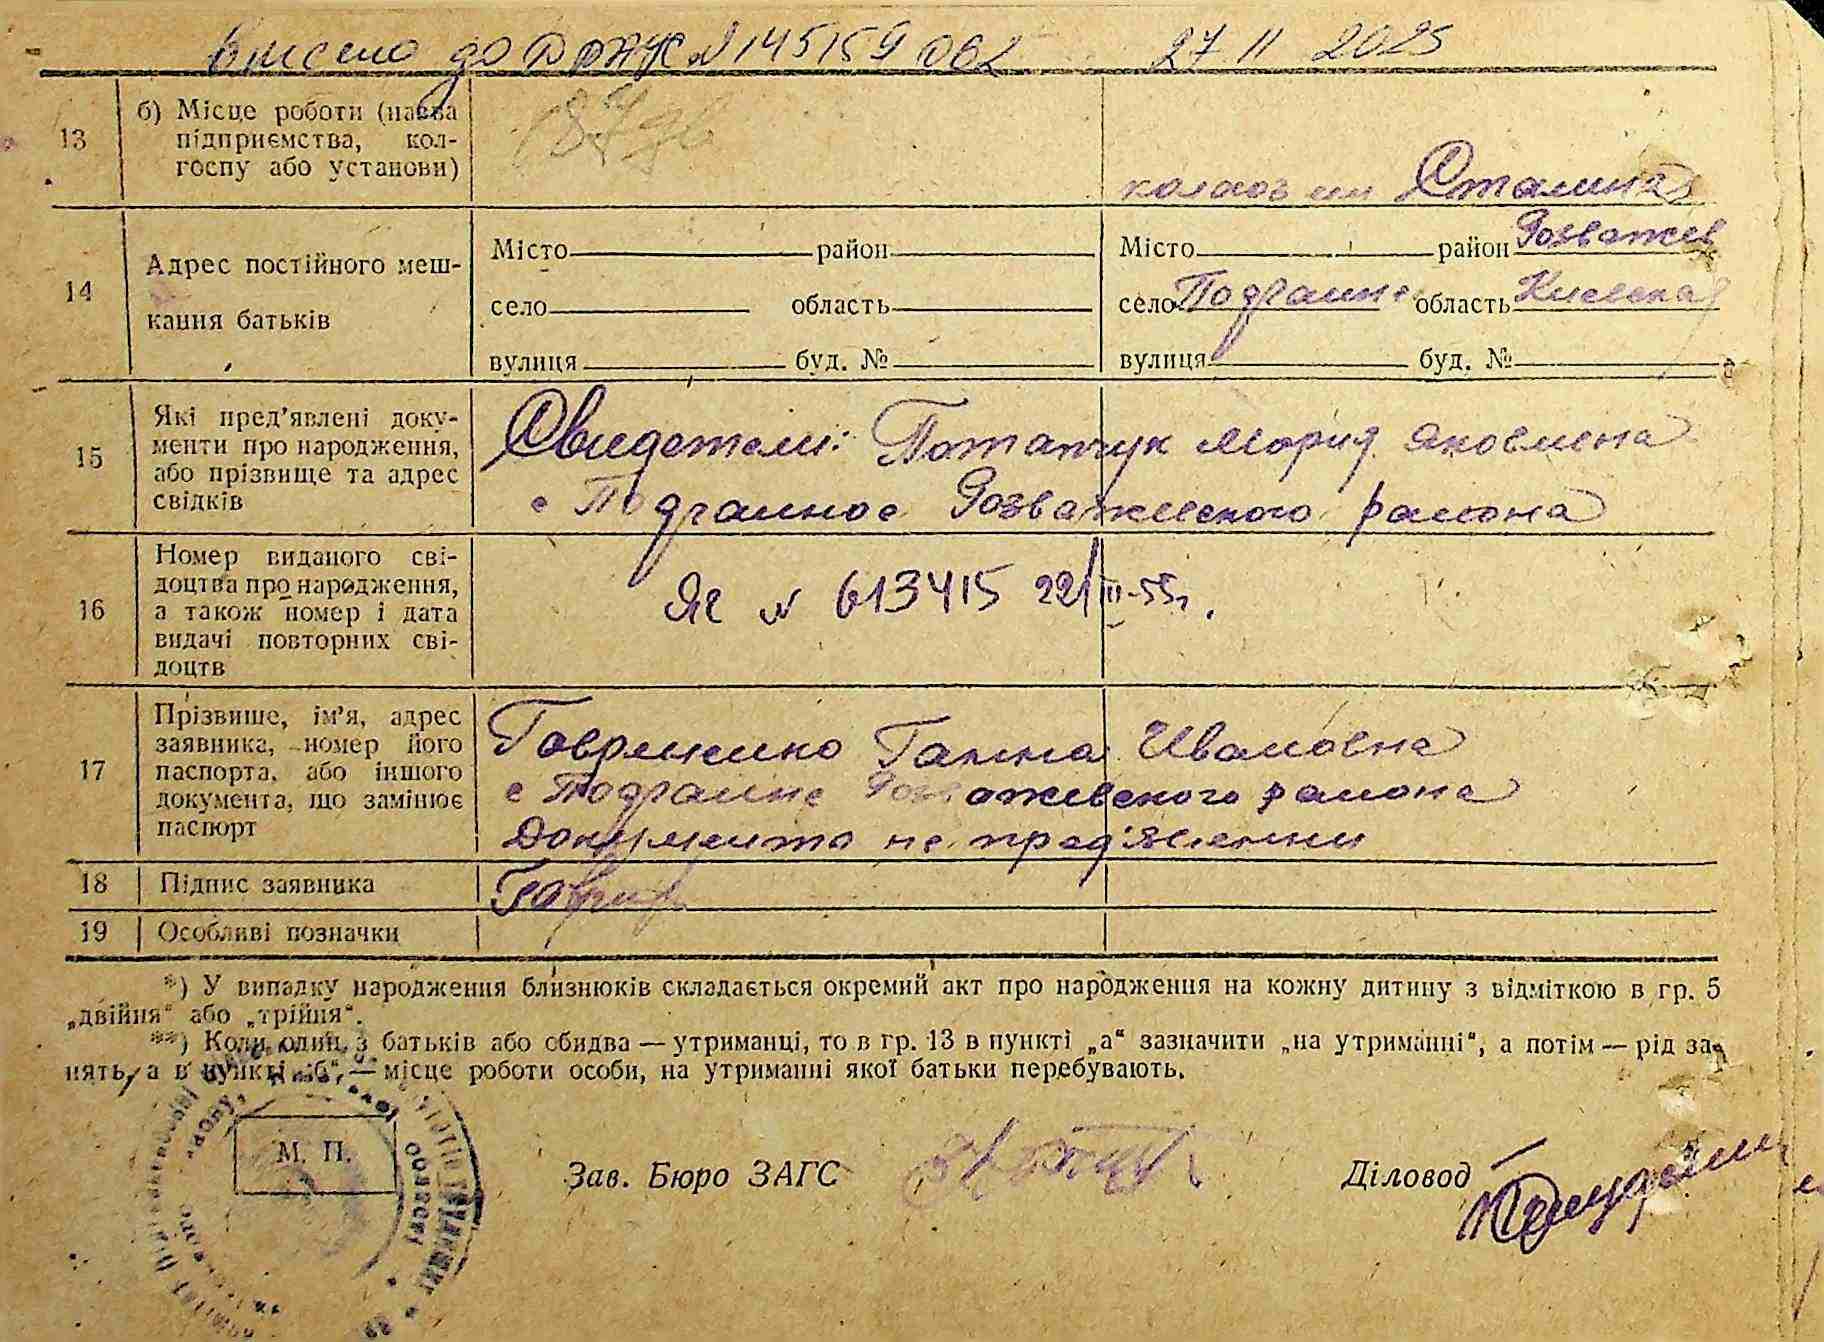 внесено до ДРАЦС № 145159062 27 11 2025
13 б) Місце роботи (назва підприємства, колгоспу або установи)
колхоз им Сталина
14 Адрес постійного мешкання батьків
Місто район Місто район Розважев
село область село Подгайне область Киевская
вулиця буд. № вулиця буд. №
15 Які пред'явлені документи про народження, або прізвище та адрес свідків
Свидетели: Потапчук Мория Яковлена
с Подгайное Розважевского района
16 Номер виданого свідоцтва про народження, а також номер і дата видачі повторних свідоцтв
ЯЕ № 613415 22/III-55г.
17 Прізвище, ім'я, адрес заявника, номер його паспорта, або іншого документа, що замінює паспорт
Гавриленко Ганна Ивановна
с Подгайне Розважевского района
Документа не пред'явленни
18 Підпис заявника
19 Особливі позначки
*) У випадку народження близнюків складається окремий акт про народження на кожну дитину з відміткою в гр. 5
„двійня“ або „трійня“.
**) Коли один з батьків або обидва — утриманці, то в гр. 13 в пункті „а“ зазначити „на утриманні“, а потім — рід за-
нять, а в пункті „б“ — місце роботи особи, на утриманні якої батьки перебувають.
М. П.
Зав. Бюро ЗАГС Діловод